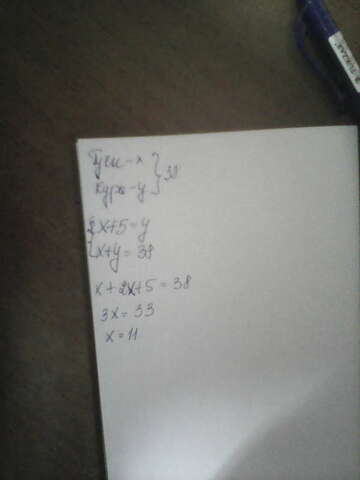 Гуси - x
Куры - y } 38
{ 2x+5=y
x+y=38
x+2x+5=38
3x=33
x=11